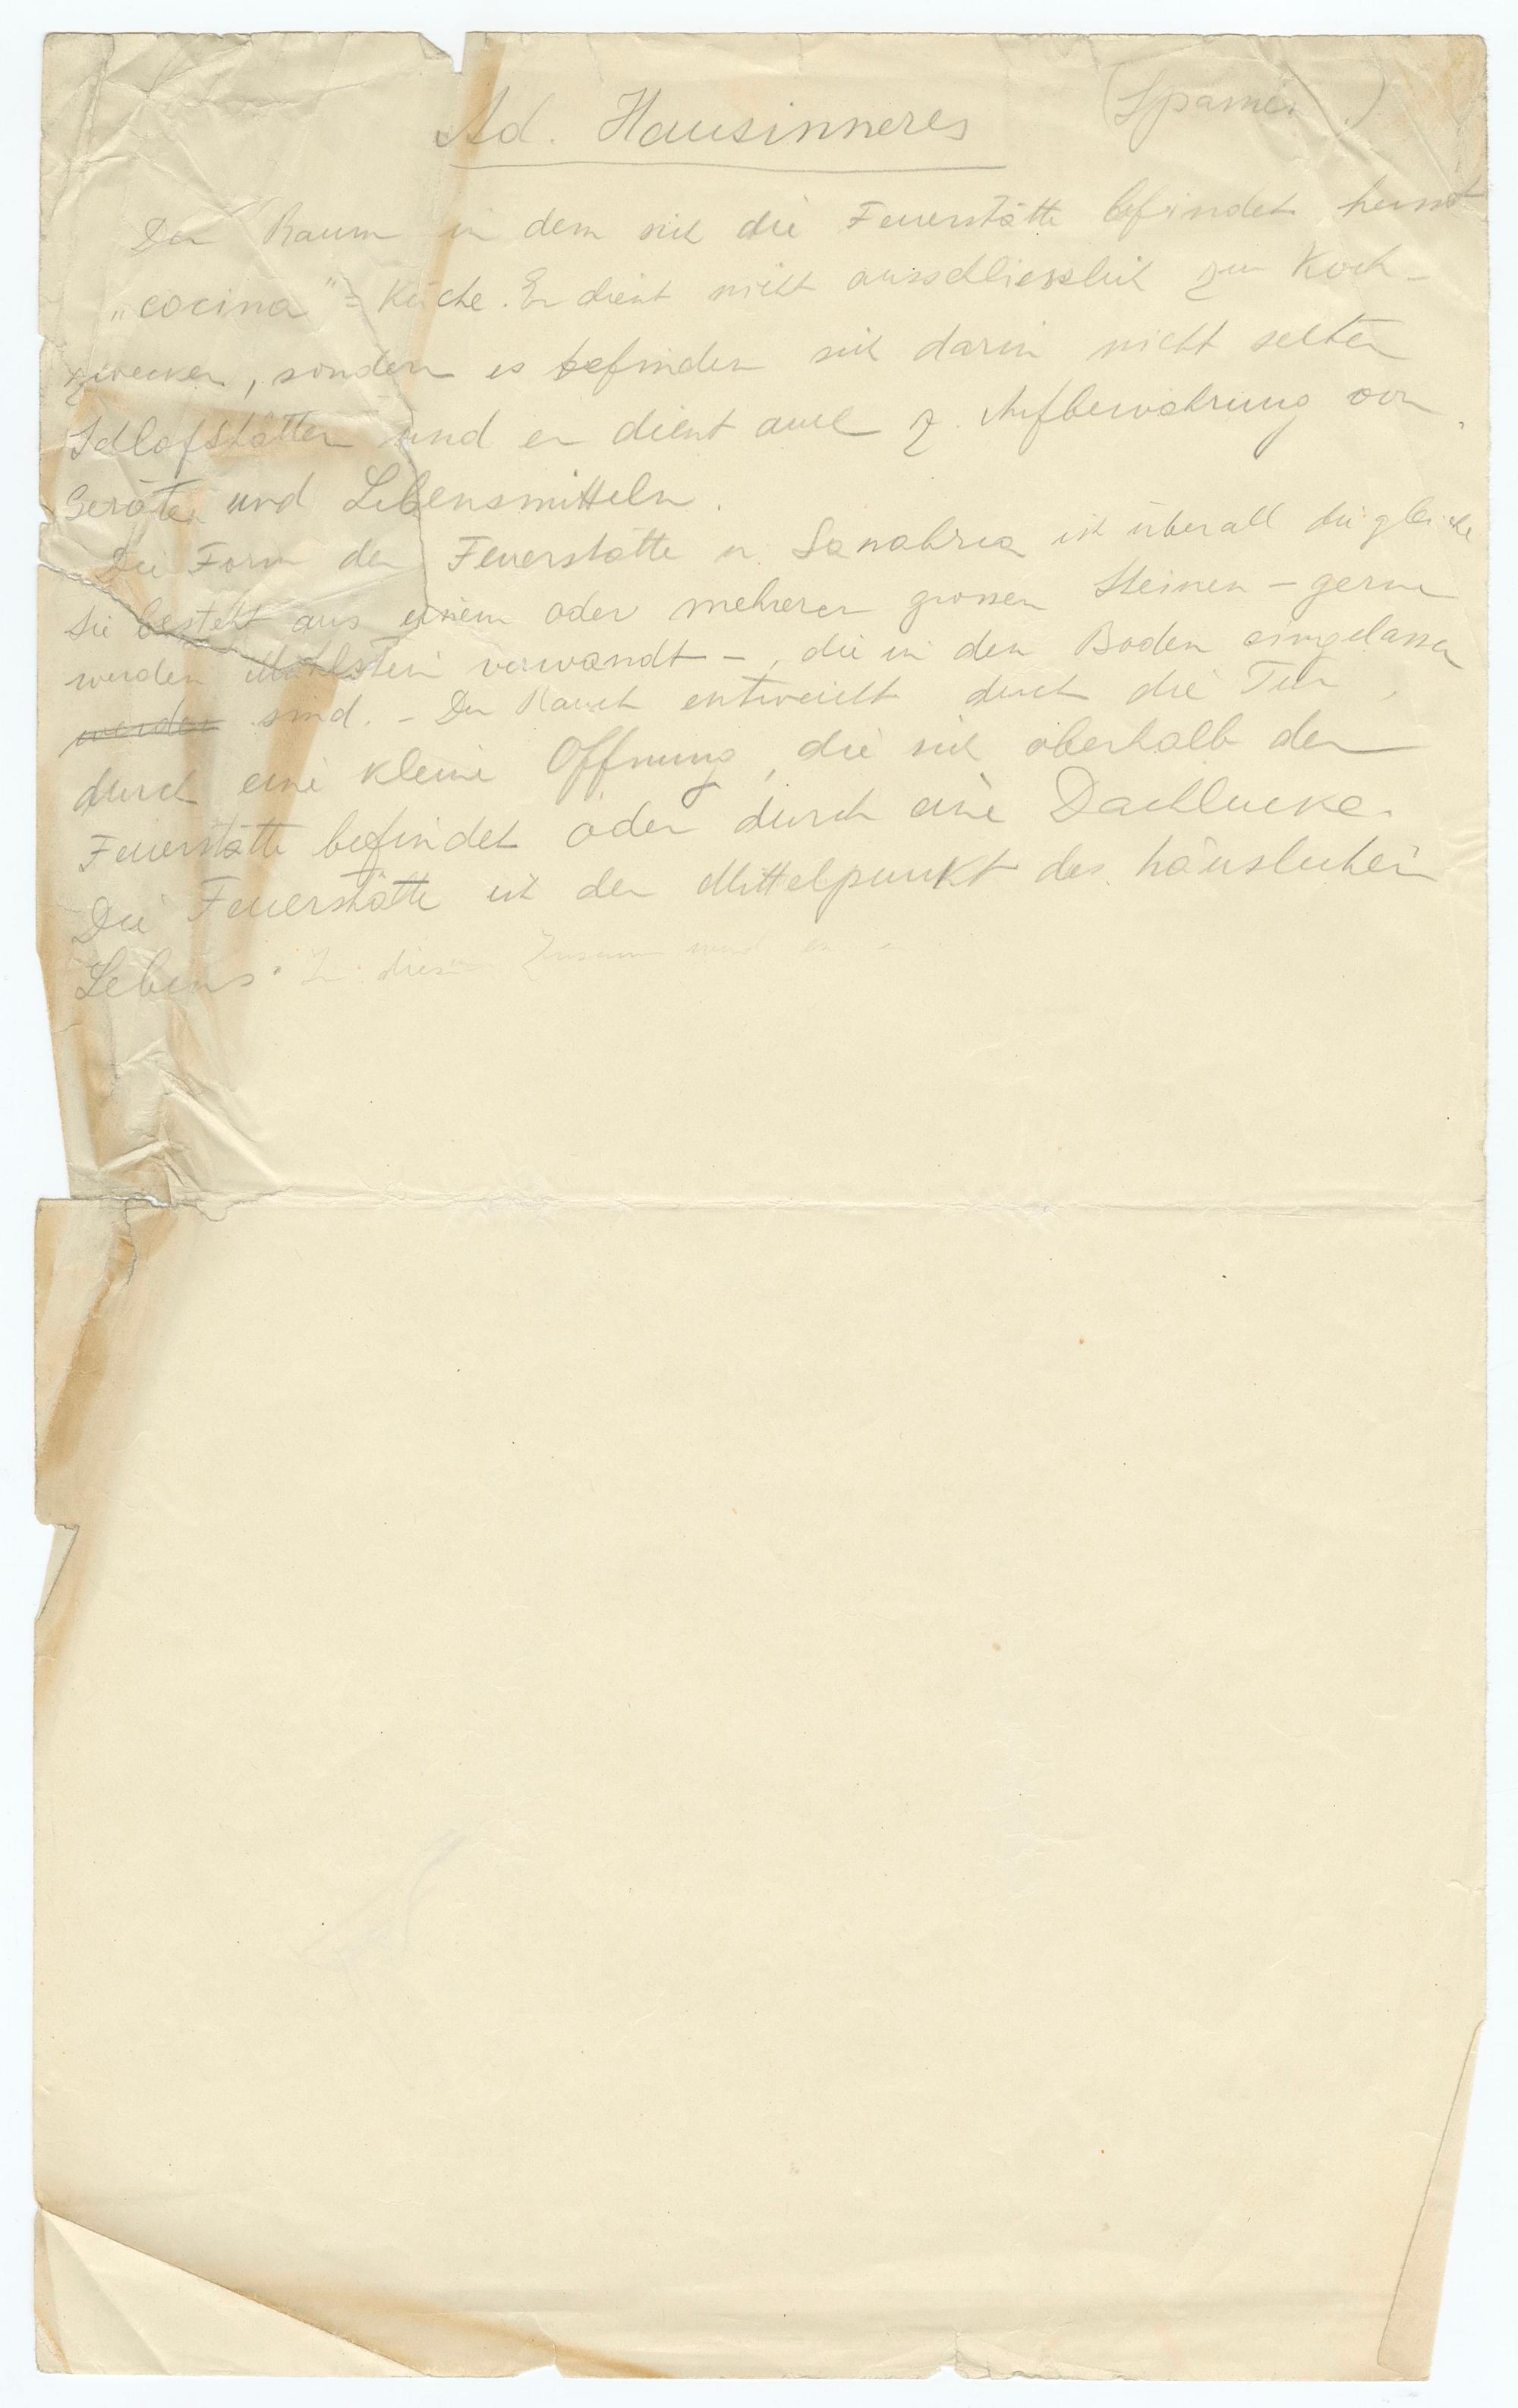 Ad. Hausinneres
(Spamer.)
Der Raum in dem sich die Feuerstätte befindet heisst
„cocina" = Küche. Er dient nicht ausschliesslich zu Koch-
zwecken, sondern es befinden sich darin nicht selten
Schlafstätten und er dient auch z. Aufbewahrung von
Geräten und Lebensmitteln.
Die Form der Feuerstätte in Sanabria ist überall die gleiche
Sie besteht aus einem oder mehreren grossen Steinen – gerne
werden Mühlstein verwandt –, die in den Boden eingelassen
werden sind. – Der Rauch entweicht durch die Tür,
durch eine kleine Öffnung, die sich oberhalb der
Feuerstätte befindet oder durch eine Dachlucke.
Die Feuerstätte ist der Mittelpunkt des häuslichen
Lebens. In diesem